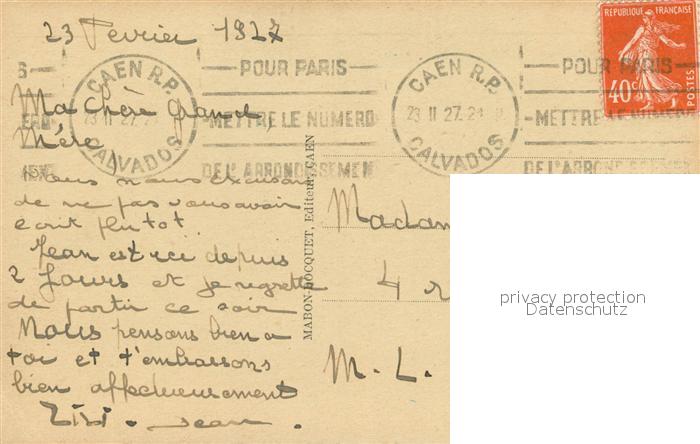 23 Fevrier 1927
Ma Chère grand,
Mère,
Nous nous excusons
de ne pas vous avoir
écrit plutot.
Jean est ici depuis
2 Jours et je regrette
de partir ce soir
Nous pensons bien a
toi et t'embrassons
bien affectueusement
Zizi. Jean.
CAEN R.P.
23 II 27
CALVADOS
POUR PARIS
METTRE LE NUMERO
DE L'ARRONDISSEMEN
CAEN R.P.
23 II 27
CALVADOS
POUR PARIS
METTRE LE NUMERO
DE L'ARRONDISSEMEN
REPUBLIQUE FRANÇAISE
40c
POSTES
MABON-DOCQUET, Editeur, CAEN
Madam
4 r
M. L.
privacy protection
Datenschutz